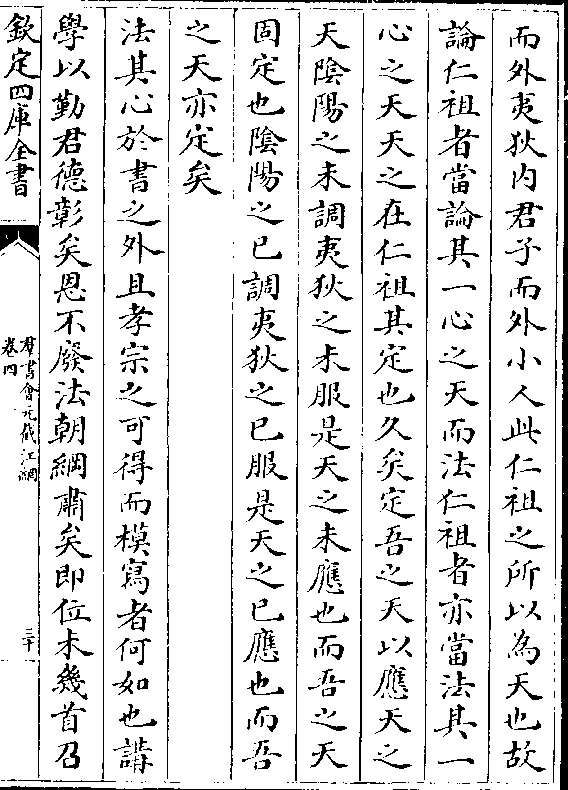 而外夷狄内君子而外小人此仁祖之所以為天也故
論仁祖者當論其一心之天而法仁祖者亦當法其一
心之天天之在仁祖其定也久矣定吾之天以應天之
天陰陽之未調夷狄之未服是天之未應也而吾之天
固定也陰陽之已調夷狄之已服是天之已應也而吾
之天亦定矣
法其心於書之外且孝宗之可得而模寫者何如也講
學以勤君德彰矣恩不廢法朝綱肅矣即位未幾首召
欽定四庫全書
羣書會元截江網
卷四
三十